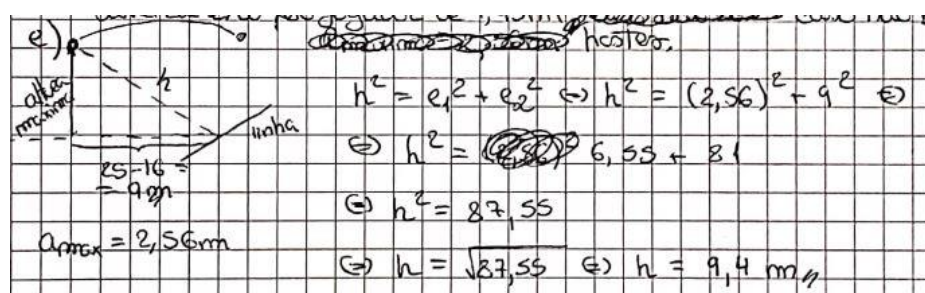 e)
hastes.
h
altura
máxima
linha
25-16 =
= 9m
amax = 2,56m
h² = e₁² + e₂² ⇔ h² = (2,56)² + 9² ⇔
⇔ h² = 6,55 + 81
⇔ h² = 87,55
⇔ h = √87,55 ⇔ h = 9,4 m //